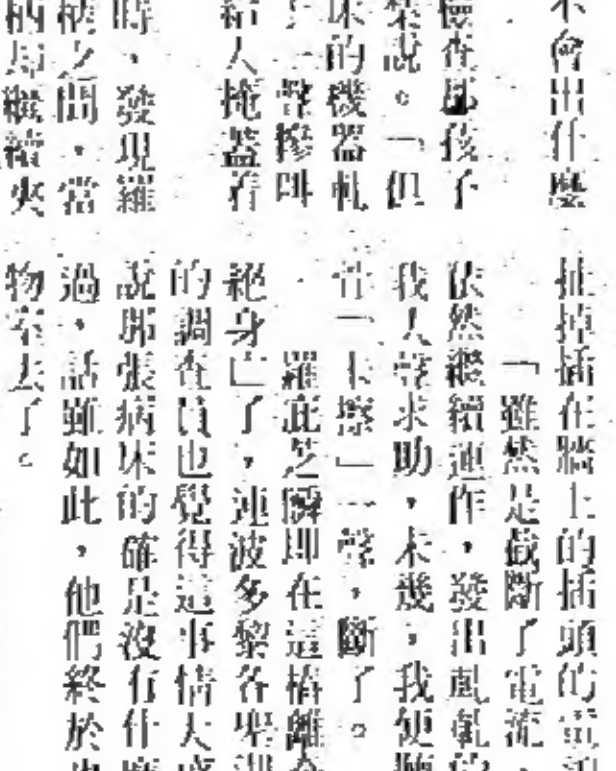 不會出什麼
檢查那孩子
黎說。「但
床的機器軋
了一聲慘叫
給人掩蓋着
時,發現羅
之間,當
繼續夾
抽掉插在牆上的插頭的電
「雖然是截斷了電流,
依然繼續運作,發出軋軋的
我大聲求助,未幾,我便聽
「卡擦」一聲,斷了。
羅庇芝瞬即在這樁離
絕身亡了,連波多黎各
的調查員也覺得這事情大感
說那張病床的確是沒有什麼
過,話雖如此,他們終於也
物室去了。